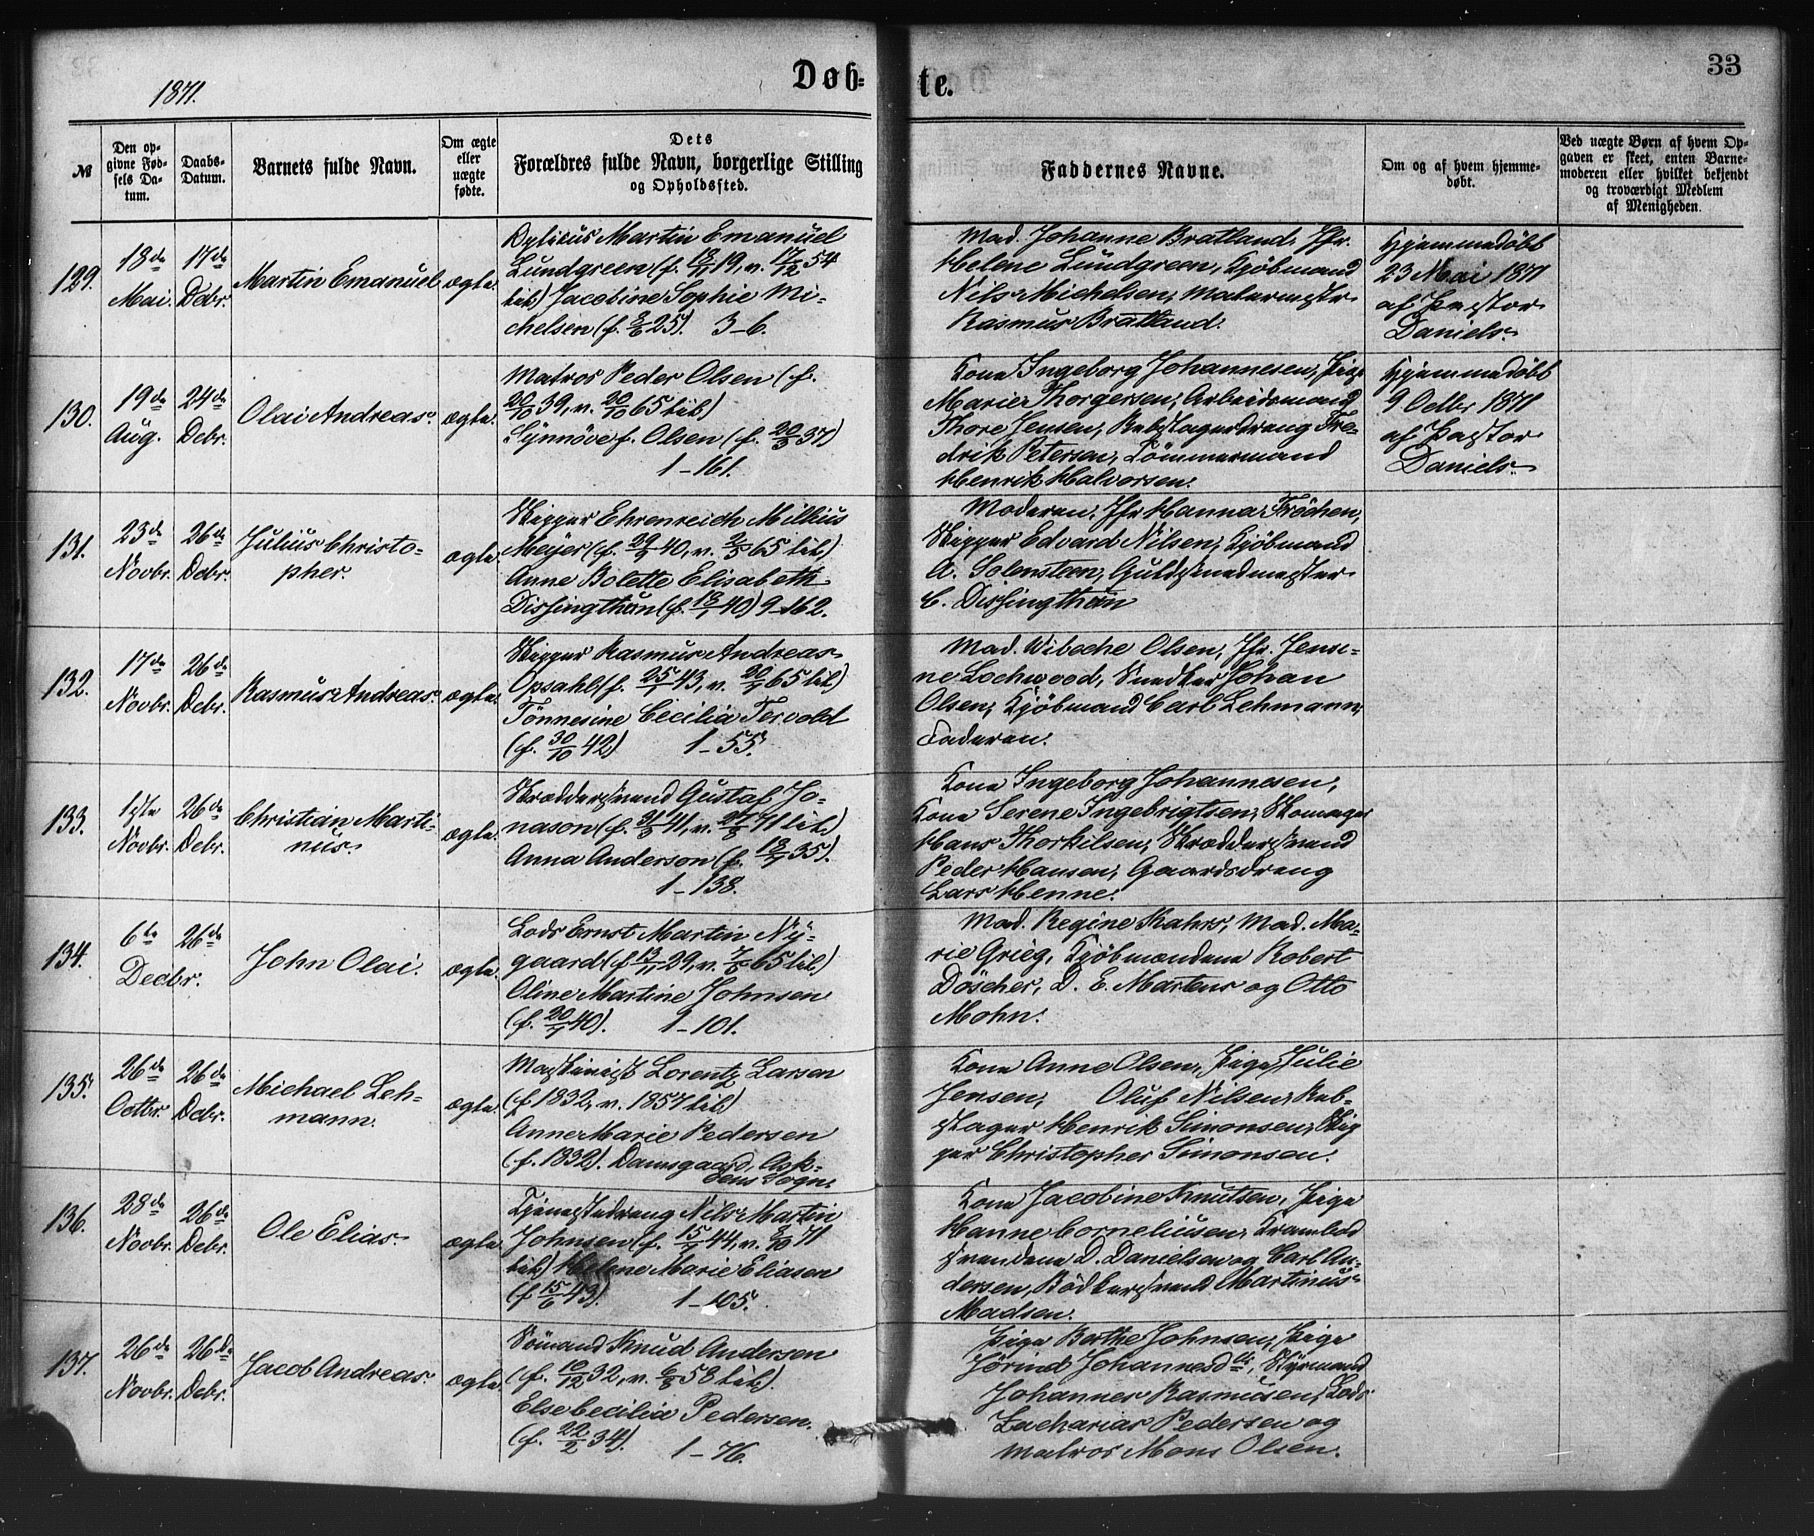 1871.
Døb=
te.
33
№
Den op-
givne Fød-
sels Da-
tum.
Daabs-
Datum.
Barnets fulde Navn.
Om ægte
eller
uægte
fødte.
Dets
Forældres fulde Navn, borgerlige Stilling
og Opholdssted.
Faddernes Navne.
Om og af hvem hjemme-
døbt.
Ved uægte Børn af hvem Op-
gaven er skeet, enten Barne-
moderen eller hvilket bekjendt
og troværdigt Medlem
af Menigheden.
129.
18de
Mai.
17de
Debr.
Martin Emanuel
ægte.
Martin Emanuel
Lundgreen (f. 18/1 19, v. 17/12 54
til) Jacobine Sophie Mi-
chelsen (f. 8/6 25). 3-6.
Mad. Johanne Bratland, Jfr.
Helene Lundgreen, Kjöbmand
Nils Michelsen, Malermestr
Rasmus Bratland.
Hjemmedöbt
23 Mai 1871
af Pastor
Daniels.
130.
19de
Aug.
24de
Debr.
Olai Andreas.
ægte.
Matros Peder Olsen (f.
20/10 39, v. 20/10 65 til)
Synnöve f. Olsen (f. 20/3 37)
1-161.
Kone Ingeborg Johannesen, Pige
Marie Thorgersen, Arbeidsmand
Thore Jensen, Rebslagerdreng Fre-
drik Petersen, Tömmermand
Henrik Halvorsen.
Hjemmedöbt
9 Octbr 1871
af Pastor
Daniels.
131.
23de
Novbr.
26de
Debr.
Julius Christo-
pher.
ægte.
Skipper Ehrenreich Milkius
Meyer (f. 29/9 40, v. 2/5 65 til)
Anne Bolette Elisabeth
Dissingthun (f. 18/1 40) 9-162.
Moderen, Jfr Hanna Fröchen,
Skipper Edvard Nilsen, Kjöbmand
A. Solensteen, Guldsmedmester
C. Dissingthun
132.
17de
Novbr.
26de
Debr.
Rasmus Andreas.
ægte.
Skipper Rasmus Andreas
Opsahl (f. 25/1 43, v. 20/9 65 til)
Tönnesine Cecilia Tervold
(f. 30/10 42) 1-55.
Mad. Wibeche Olsen, Jfr. Jensi-
ne Lochwood, Snedker Johan
Olsen, Kjöbmand Carl Lehmann,
Faderen.
133.
1ste
Novbr.
26de
Debr.
Christian Marti-
nus.
ægte.
Skræddersvend Gustaf Jo-
nason (f. 21/8 41, v. 27/8 71 til)
Anna Anderson (f. 18/9 35).
1-138.
Kone Ingeborg Johannesen,
Kone Serene Ingebrigtsen, Skomager
Hans Thorkilsen, Skræddersvend
Peder Hansen, Gaardsdreng
Lars Henne.
134.
6te
Decbr.
26de
John Olai.
ægte.
Lods Ernst Martin Ny-
gaard (f. 13/11 29, v. 7/6 65 til)
Oline Martine Johnsen
(f. 20/1 40). 1-101.
Mad. Regine Kahrs, Mad. Ma-
rie Grieg, Kjöbmændene Robert
Döscher, D. E. Martens og Otto
Mohn.
135.
26de
Octbr.
26de
Debr.
Michael Leh-
mann.
ægte.
Maskinist Lorentz Larsen
(f. 1832, v. 1857 til)
Anne Marie Pedersen
(f. 1832). Damsgaard, Ask-
öens Sogn.
Kone Anne Olsen, Pige Julie
Jensen, Oluf Nilsen, Reb-
slager Henrik Simonsen, Skip
per Christopher Simonsen.
136.
28de
Novbr.
26de
Debr.
Ole Elias.
ægte.
Tjenestedreng Nils Martin
Johnsen (f. 15/7 44, v. 8/10 71
til) Helene Marie Eliasen
(f. 15/6 43). 1-105.
Kone Jacobine Knutsen, Pige
Hanne Corneliusen, Krambod
svendene D. Danielsen og Carl An-
dersen, Bödkersvend Martinus
Madsen.
137.
26de
Novbr.
26de
Debr.
Jacob Andreas.
ægte.
Sömand Knud Andersen
(f. 10/12 32, v. 6/8 58 til).
Else Cecilia Pedersen.
(f. 22/2 34). 1-76.
Pige Berthe Johnsen, Pige
Jörind Johannesdtr, Styrmand
Johannes Rasmusen, Lods
Zacharias Pedersen og
Matros Mons Olsen.